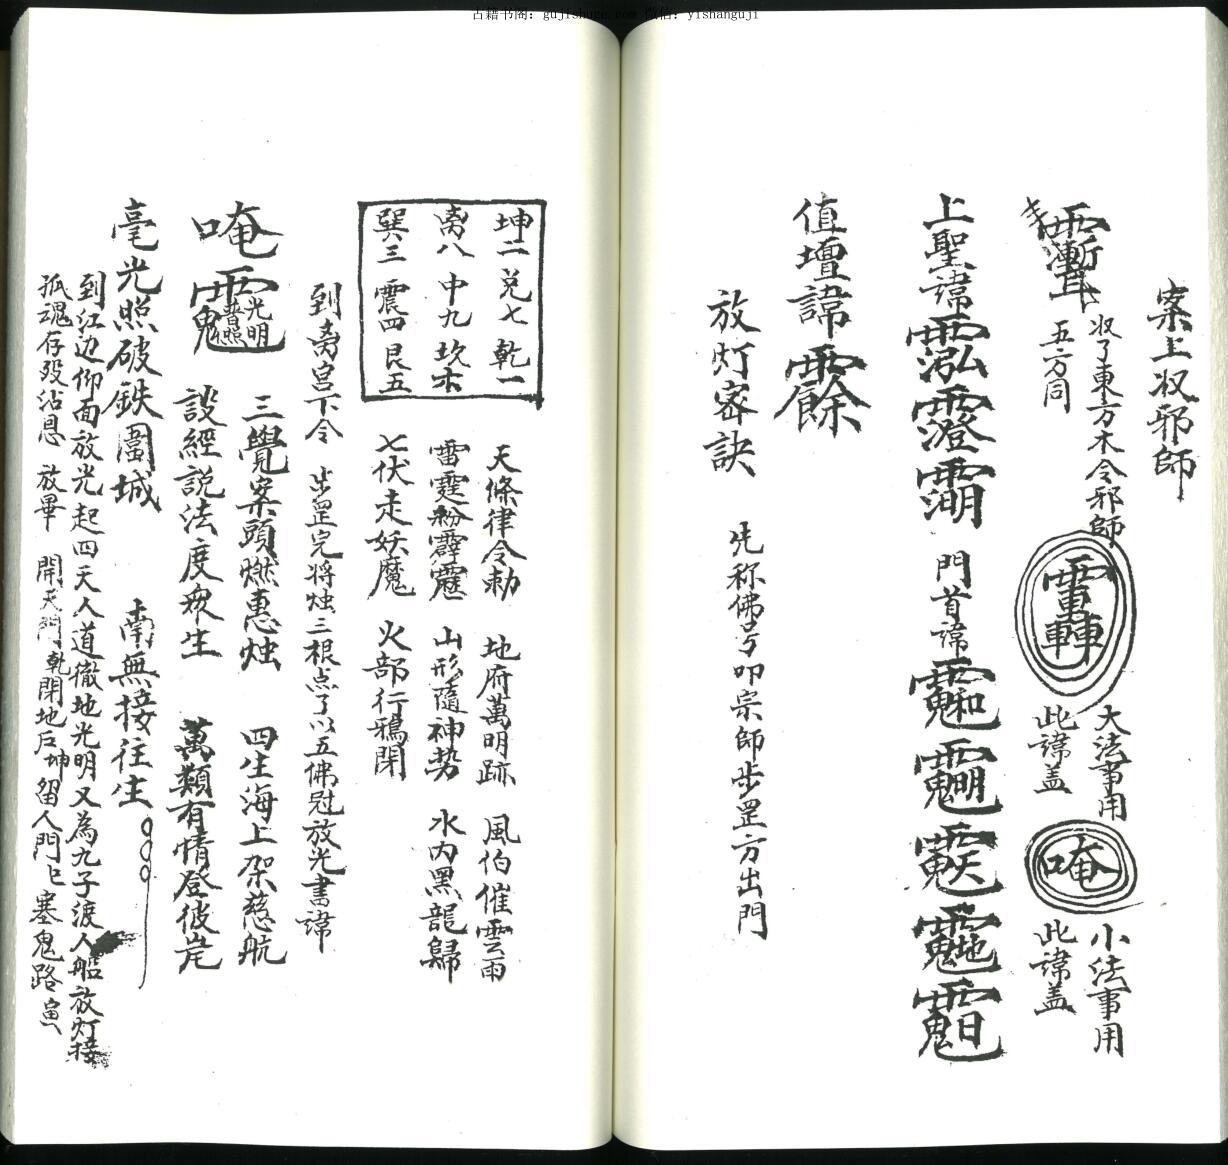 古籍书阁：gujishuge.com 微信：yishanguji
案上收邪師
收了東方木令邪師
五方同
大法事用
此諱盖
唵
小法事用
此諱盖
上聖諱
門首諱
值壇諱
放灯密訣
先称佛号叩宗師步罡方出門
坤二兑七乾一
离八中九坎六
巽三震四艮五
天條律令勅 地府萬明跡 風伯催雲雨
雷霆粉霹靂 山形隨神势 水内黑龍歸
七伏走妖魔 火部行鴉閉
到离宫下令 步罡完将烛三根点了以五佛冠放光書諱
三覺案頭燃惠烛 四生海上架慈航
唵 光明普照 設經説法度衆生 萬類有情登彼岸
毫光照破鉄圍城 南無接往生
到江边仰面放光起四天人道徹地光明又為九子渡人船放灯接
孤魂存殁沾恩 放畢 開天門乾閉地户坤留人門巳塞鬼路寅